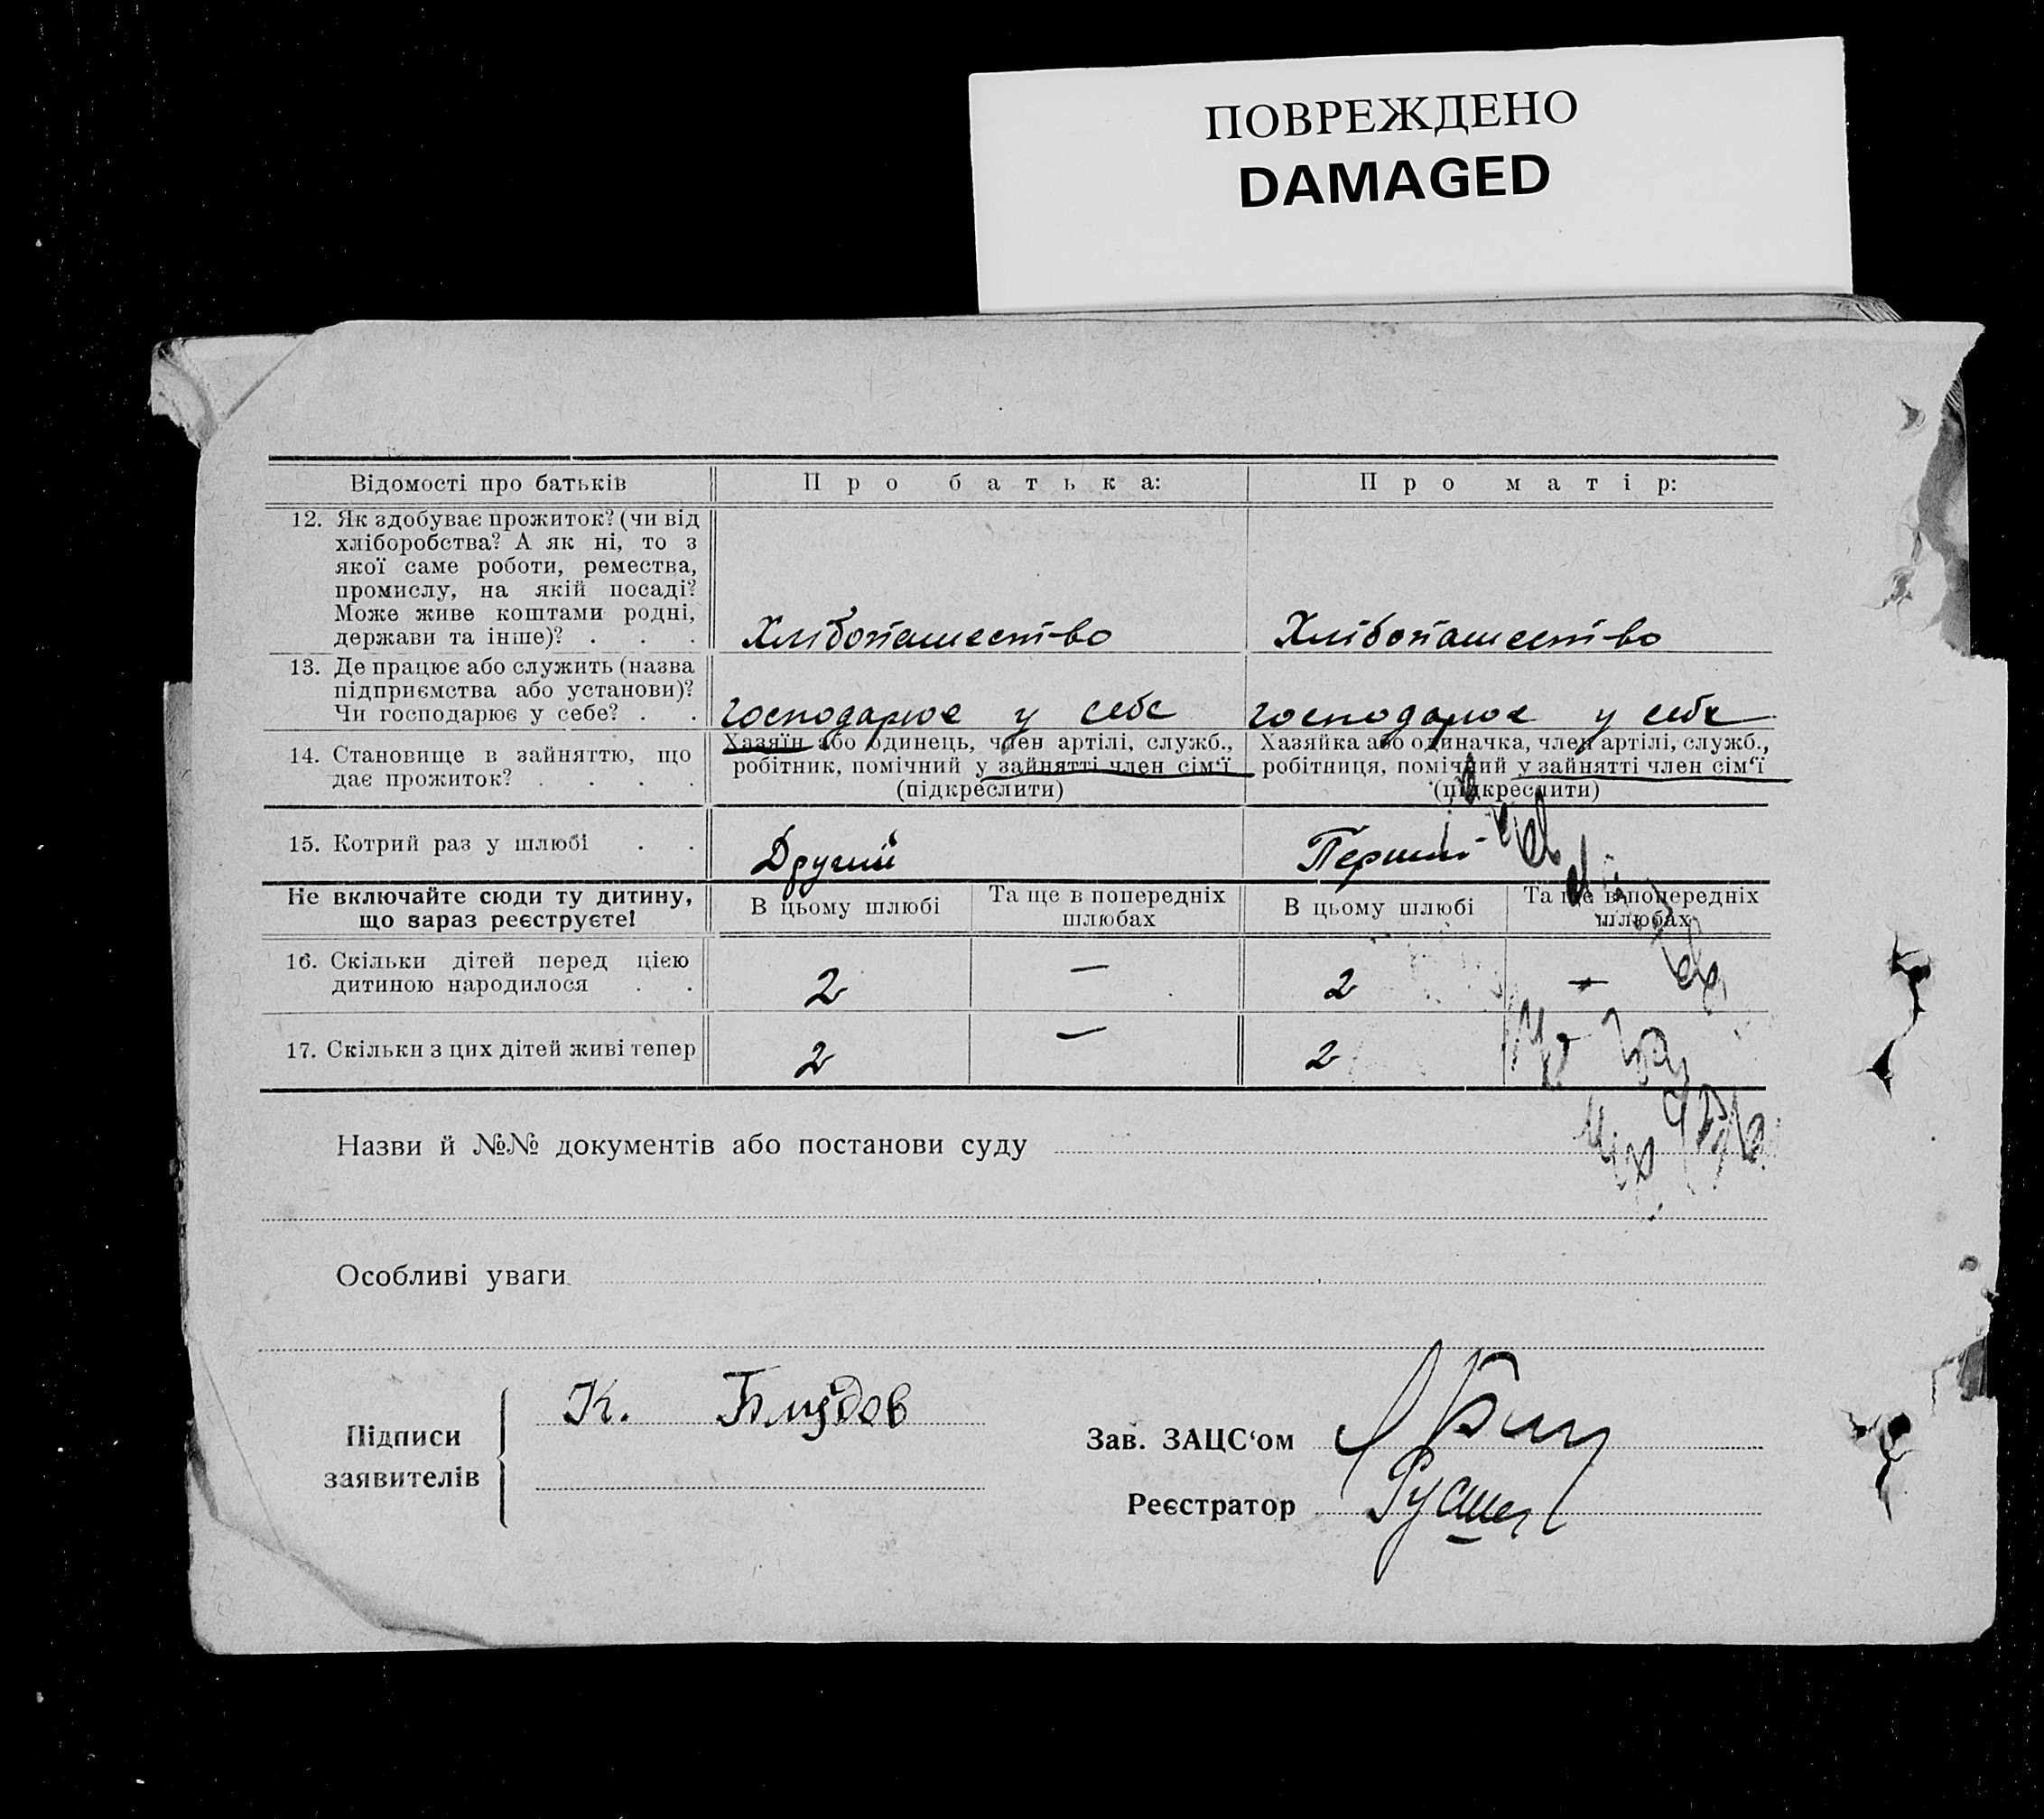 ПОВРЕЖДЕНО
DAMAGED
Відомості про батьків
Про батька:
Про матір:
12. Як здобуває прожиток? (чи від
хліборобства? А як ні, то з
якої саме роботи, ремества,
промислу, на якій посаді?
Може живе коштами родні,
держави та інше)? . . .
Хлібопашество
Хлібопашество
13. Де працює або служить (назва
підприємства або установи)?
Чи господарює у себе? . .
господарює у себе
господарює у себе
14. Становище в зайняттю, що
дає прожиток? . . . .
Хазяїн або одинець, член артілі, служб.,
робітник, помічний у зайнятті член сім‘ї
(підкреслити)
Хазяйка або одиначка, член артілі, служб.,
робітниця, помічний у зайнятті член сім‘ї
(підкреслити)
15. Котрий раз у шлюбі . .
Другий
Перший
Не включайте сюди ту дитину,
що зараз реєструєте!
В цьому шлюбі
Та ще в попередніх
шлюбах
В цьому шлюбі
Та ще в попередніх
шлюбах
16. Скільки дітей перед цією
дитиною народилося . .
2
—
2
—
17. Скільки з цих дітей живі тепер
2
—
2
Назви й №№ документів або постанови суду
Особливі уваги
Підписи
заявителів
К.
Зав. ЗАЦС‘ом
Реєстратор